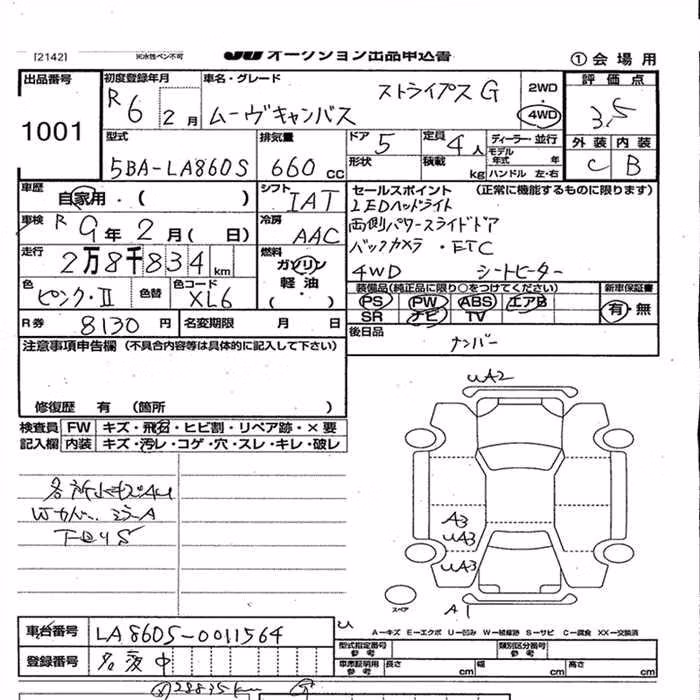 [2142]
JU オークション出品申込書
① 会場用
出品番号
1001
初度登録年月
R6 2月
車名・グレード
ムーヴキャンバス ストライプス G
2WD
・
4WD
評価点
3.5
型式
5BA-LA860S
排気量
660 cc
ドア 5
定員 4人
ディーラー・並行
モデル年式 年
形状
積載 kg
ハンドル 左・右
外装 内装
C B
車歴
自家用・( )
シフト
IAT
車検 R 9年2月( 日)
冷房
AAC
走行
2万8千834 km
燃料
ガソリン
軽油
・( )
色
ピンク・II
色替
色コード
XL6
R券 8130 円
名変期限 月 日
セールスポイント (正常に機能するものに限ります)
LEDヘッドライト
両側パワースライドドア
バックカメラ・ETC
4WD シートヒーター
装備品(純正品に限り○をつけてください)
PS PW ABS エアB
SR ナビ TV
新車保証書
有・無
後日品
ナンバー
注意事項申告欄 (不具合内容等は具体的に記入して下さい)
修復歴 有 (箇所 )
検査員 FW キズ・飛石・ヒビ割・リペア跡・×要
記入欄 内装 キズ・汚レ・コゲ・穴・スレ・キレ・破レ
uA2
A3
uA3
uA3
A1
スペア
u
A−キズ E−エクボ U−凹み W−補修跡 S−サビ C−腐食 XX−交換済
車台番号 LA860S-0011564
登録番号 名変中
型式指定番号
参考
類別区分番号
車庫証明用
参考
長さ cm
幅 cm
高さ cm
28835km